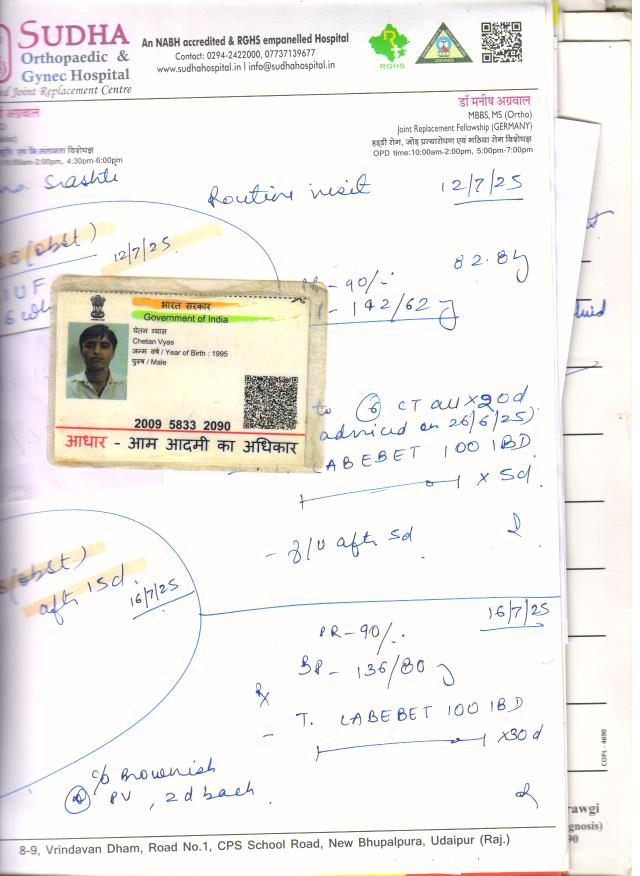 SUDHA
Orthopaedic &
Gynec Hospital
Joint Replacement Centre
An NABH accredited & RGHS empanelled Hospital
Contact: 0294-2422000, 07737139677
www.sudhahospital.in I info@sudhahospital.in
RGHS
अग्रवाल
10:00am-2:00pm, 4:30pm-6:00pm
डॉ मनीष अग्रवाल
MBBS, MS (Ortho)
Joint Replacement Fellowship (GERMANY)
हड्डी रोग, जोड़ प्रत्यारोपण एवं गठिया रोग विशेषज्ञ
OPD time:10:00am-2:00pm, 5:00pm-7:00pm
Srashti
Routine visit
12/7/25
(obst)
12/7/25
IUF
82.8
90/-
142/62
भारत सरकार
Government of India
चेतन व्यास
Chetan Vyas
जन्म वर्ष / Year of Birth : 1995
पुरुष / Male
2009 5833 2090
आधार - आम आदमी का अधिकार
to 6 CT all x 20d
adviced on 26/6/25)
LABEBET 100 1BD
x 5d
- f/u aft 5d
(obst)
aft 15d
16/7/25
16/7/25
PR-90/.
BP- 136/80
Rx
- T. LABEBET 100 1BD
x30d
c/o Brownish
PV, 2d back
COPL - 4690
rawgi
gnosis)
90
8-9, Vrindavan Dham, Road No.1, CPS School Road, New Bhupalpura, Udaipur (Raj.)